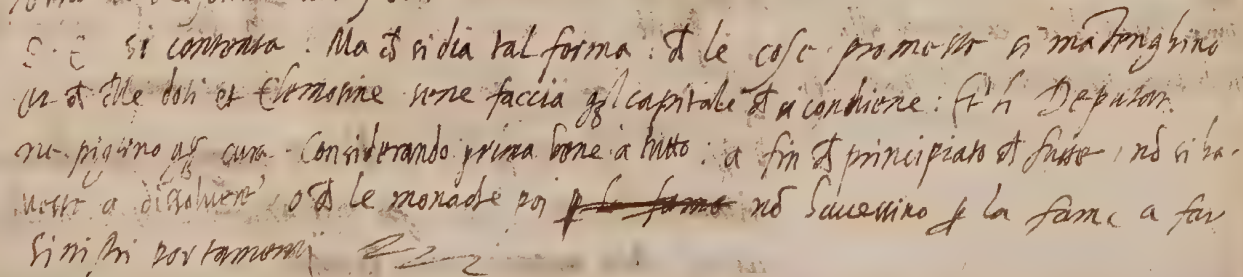 S. E. si contenta. Ma ch̃ si dia tal forma: ch̃ le cose promesse si mãtenghino
et ch̃ delle doti et Elemosine sene faccia q̃l capitale ch̃ si conviene: Et li Deputati
ne piglino q̃lla cura. Considerando prima bene à tutto: a fin ch̃ principiato ch̃ fusse, nõ si ha-
vesse a dissolvere, o ch̃ le monache poi nõ havessino ꝑ la fame a far
sinistri portamenti